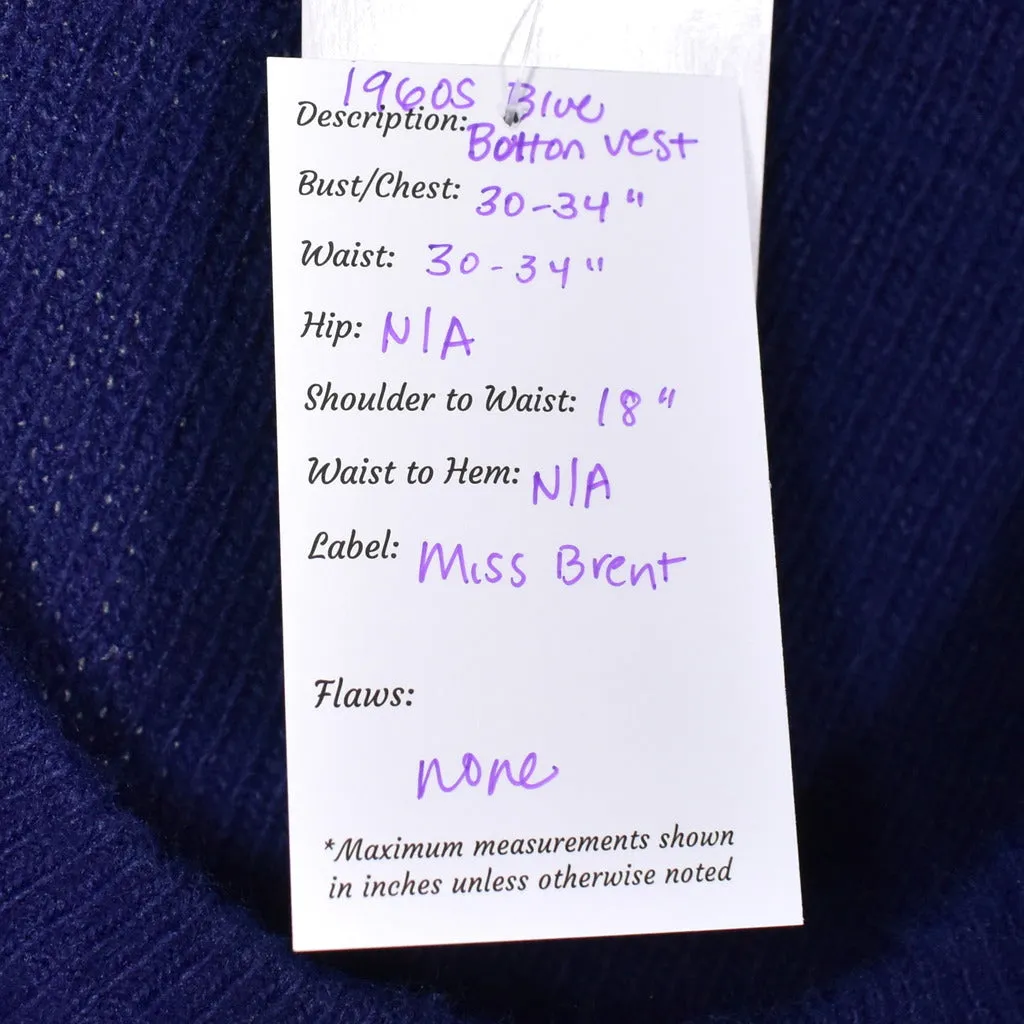 1960s Blue
Description: Botton vest
Bust/Chest: 30-34"
Waist: 30-34"
Hip: N/A
Shoulder to Waist: 18"
Waist to Hem: N/A
Label: Miss Brent
Flaws:
none
*Maximum measurements shown
in inches unless otherwise noted